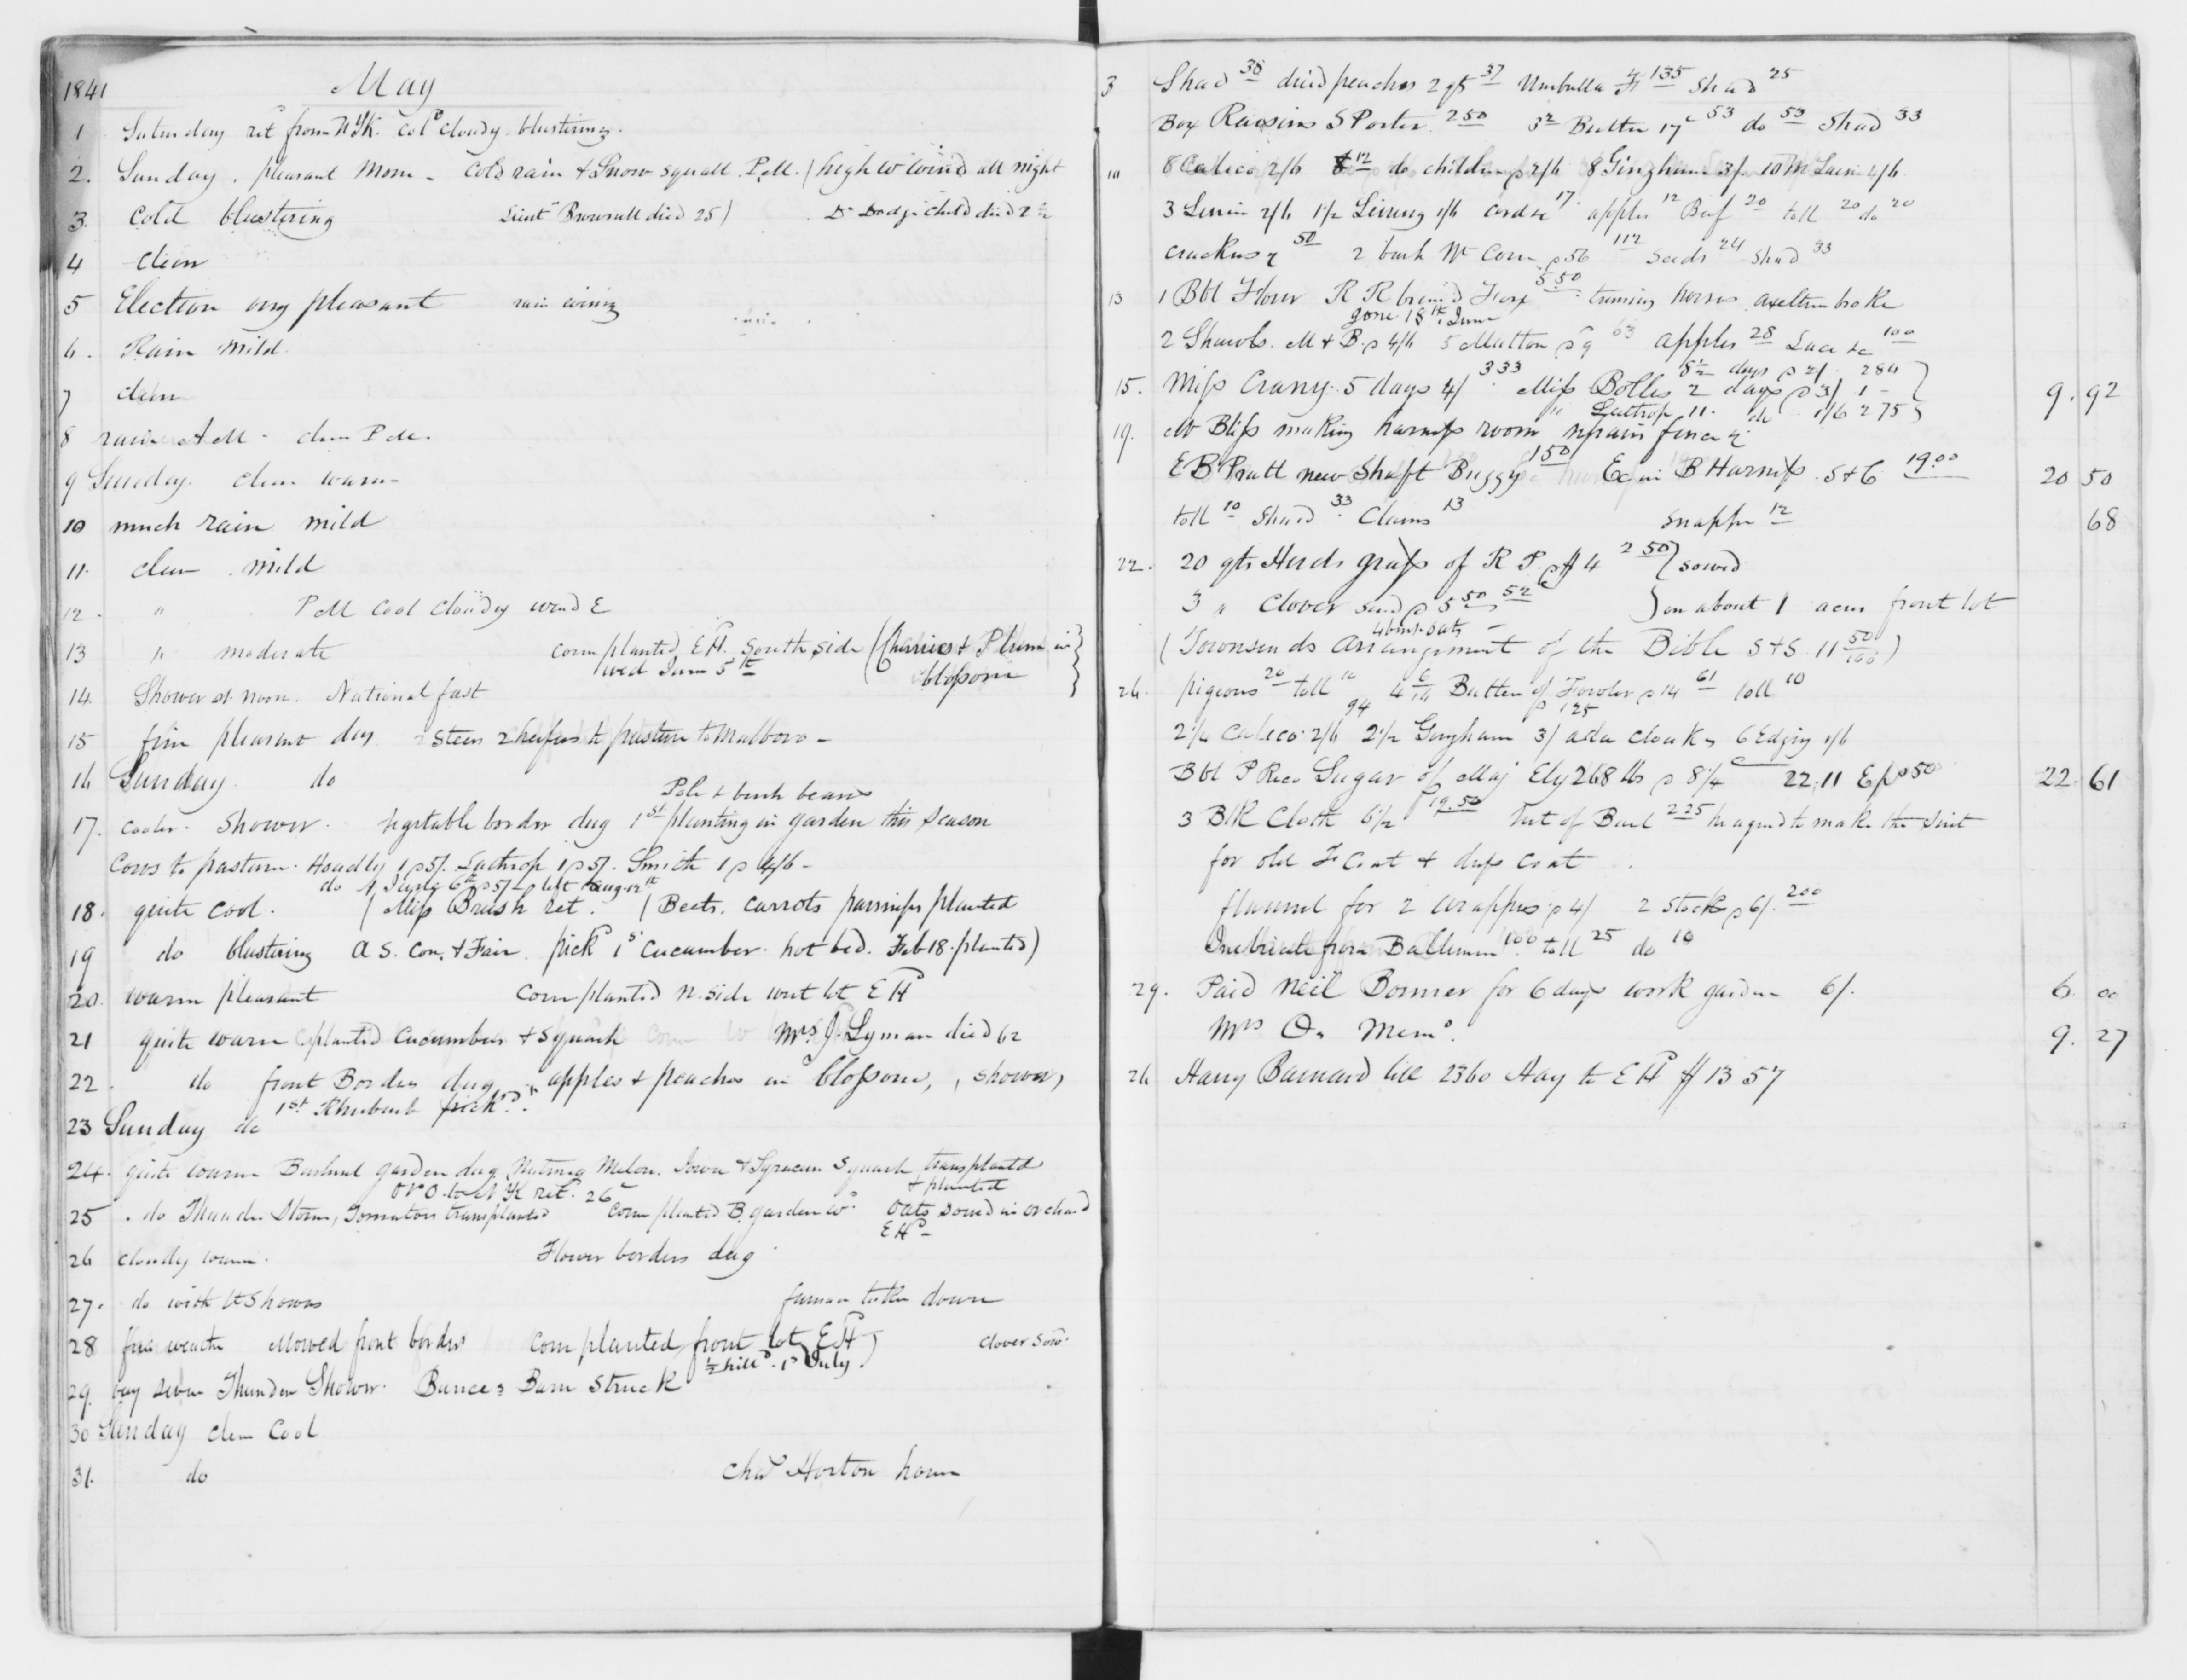 1841 May
1 Saturday ret from N Yk. cold cloudy blustering.
2. Sunday. pleasant Morn - Cold rain & Snow squall P.M. (high W wind all night
3. Cold blustering Lieut Brownell died 25) Dr Dodge child died 2 ½
4 clear
5 Election very pleasant rain evening
6. Rain mild.
7 clear
8 rain A.M - clear P M.
9 Sunday. clear warm
10 much rain mild
11. clear. mild
12. " P M Cool Cloudy wind E
13 " moderate corn planted E H. South side (Cherries & Plum in
wed June 5th blossom
14. Shower at noon. National fast
15 fine pleasant day 2 Steers 2 heifers to pasture to Malboro -
16 Sunday do
Pole & bush beans
17. Cooler. Shower. vegetable border dug 1st planting in garden this season
Cows to pasture. Hoadly 1 @ 5/. Lathrop 1 @ 5/. Smith 1 @ 4/6 -
do 6th @ 5/- left Aug. 12th
18. quite cool. (Miss Brush ret. (Beets. carrots parsnips planted
19 do blustering A S. Con. & Fair. pickd 1st Cucumber. hot bed. Feb 18. planted)
20. warm pleasant corn planted N. side west lot E H
21 quite warm planted Cucumbers & Squash Mrs J. Lyman died 62
22. do front Border dug apples & peaches in blossom, , shower,
1st Rhubarb pickd.
23 Sunday do
24. quite warm garden dug Nutmeg Melon. & Squash transplanted
to N Yk ret. 26 & planted
25. do Thunder Storm, Tomatoes transplanted Corn planted B. garden Oats sowed in orchard
E H -
26 cloudy warm. Flower borders dug
27. do with showers furnace taken down
28 fine weather Mowed front border corn planted front lot E H) Clover Sowd.
½ hilld. 1st July
29. very severe Thunder Shower. Bunces Barn Struck
30 Sunday clear Cool
31. do Chas Horton home
3 Shad 38 dried peaches 2 qts 37 Umbrella 135 Shad 25
Box Raisins S Porter 250 Butter 17c 53 do 53 Shad 33
10 8 Calico 2/6 do children @ 2/6 8 Gingham 3/
3 Linen 2/6 1½ Lining 1/6 17. apples 12 Beef 20 toll 20 do 20
crackers 50 2 bush W Corn @ 56 112 Seeds 24 Shad 33
5.50
13 1 Bbl Flour R R turning horses axeltree broke
gone 18th June
2 Shawls. M & B. @ 4/6 5 Mutton @ 9 63 apples 28 Lace &c 100
8½ days @ 2/ 284
15. Miss Crary. 5 days 4/ 333 Miss Bolles 2 days @ 3/ 1 - 9.92
" Lathrop 11. do 1/6 275
19. Mr Bliss making harness room repairs fence &c
E B Pratt new Shaft Buggy 150 B Harness. S & C 19.00 20 50
toll 10 Shad 33 Clams 13 snapper 12 68
22. 20 qts Herds grass of R P. @ $4 2 50 } sowed
3 " Clover seed @ 5 50 52c } on about 1 acre front lot
4 bush. oats -
(Townsends Arrangement of the Bible S & S. 11 50/100)
26. pigeons 20 toll 10 Butter of Fowler @ 14 61 toll 10
94 @ 125
2¼ Calico 2/6 2½ Gingham 3/ cloak, 6 Edging 1/6
Bbl P Rico Sugar of Maj Ely 268 lb @ 8¼ 22.11 Exps 50 22.61
19.50
3 Blk Cloth 6½ of Bull 225 he agreed to make the suit
for old F Coat & dress coat
flannel for 2 wrappers @ 4/ 2 stocks @ 6/. 200
100 toll 25 do 10
29. Paid Neil Bonner for 6 days work garden 6/. 6. 00
Mrs O. Memo. 9. 27
26 Harry Barnard 2360 Hay to E H $13 57